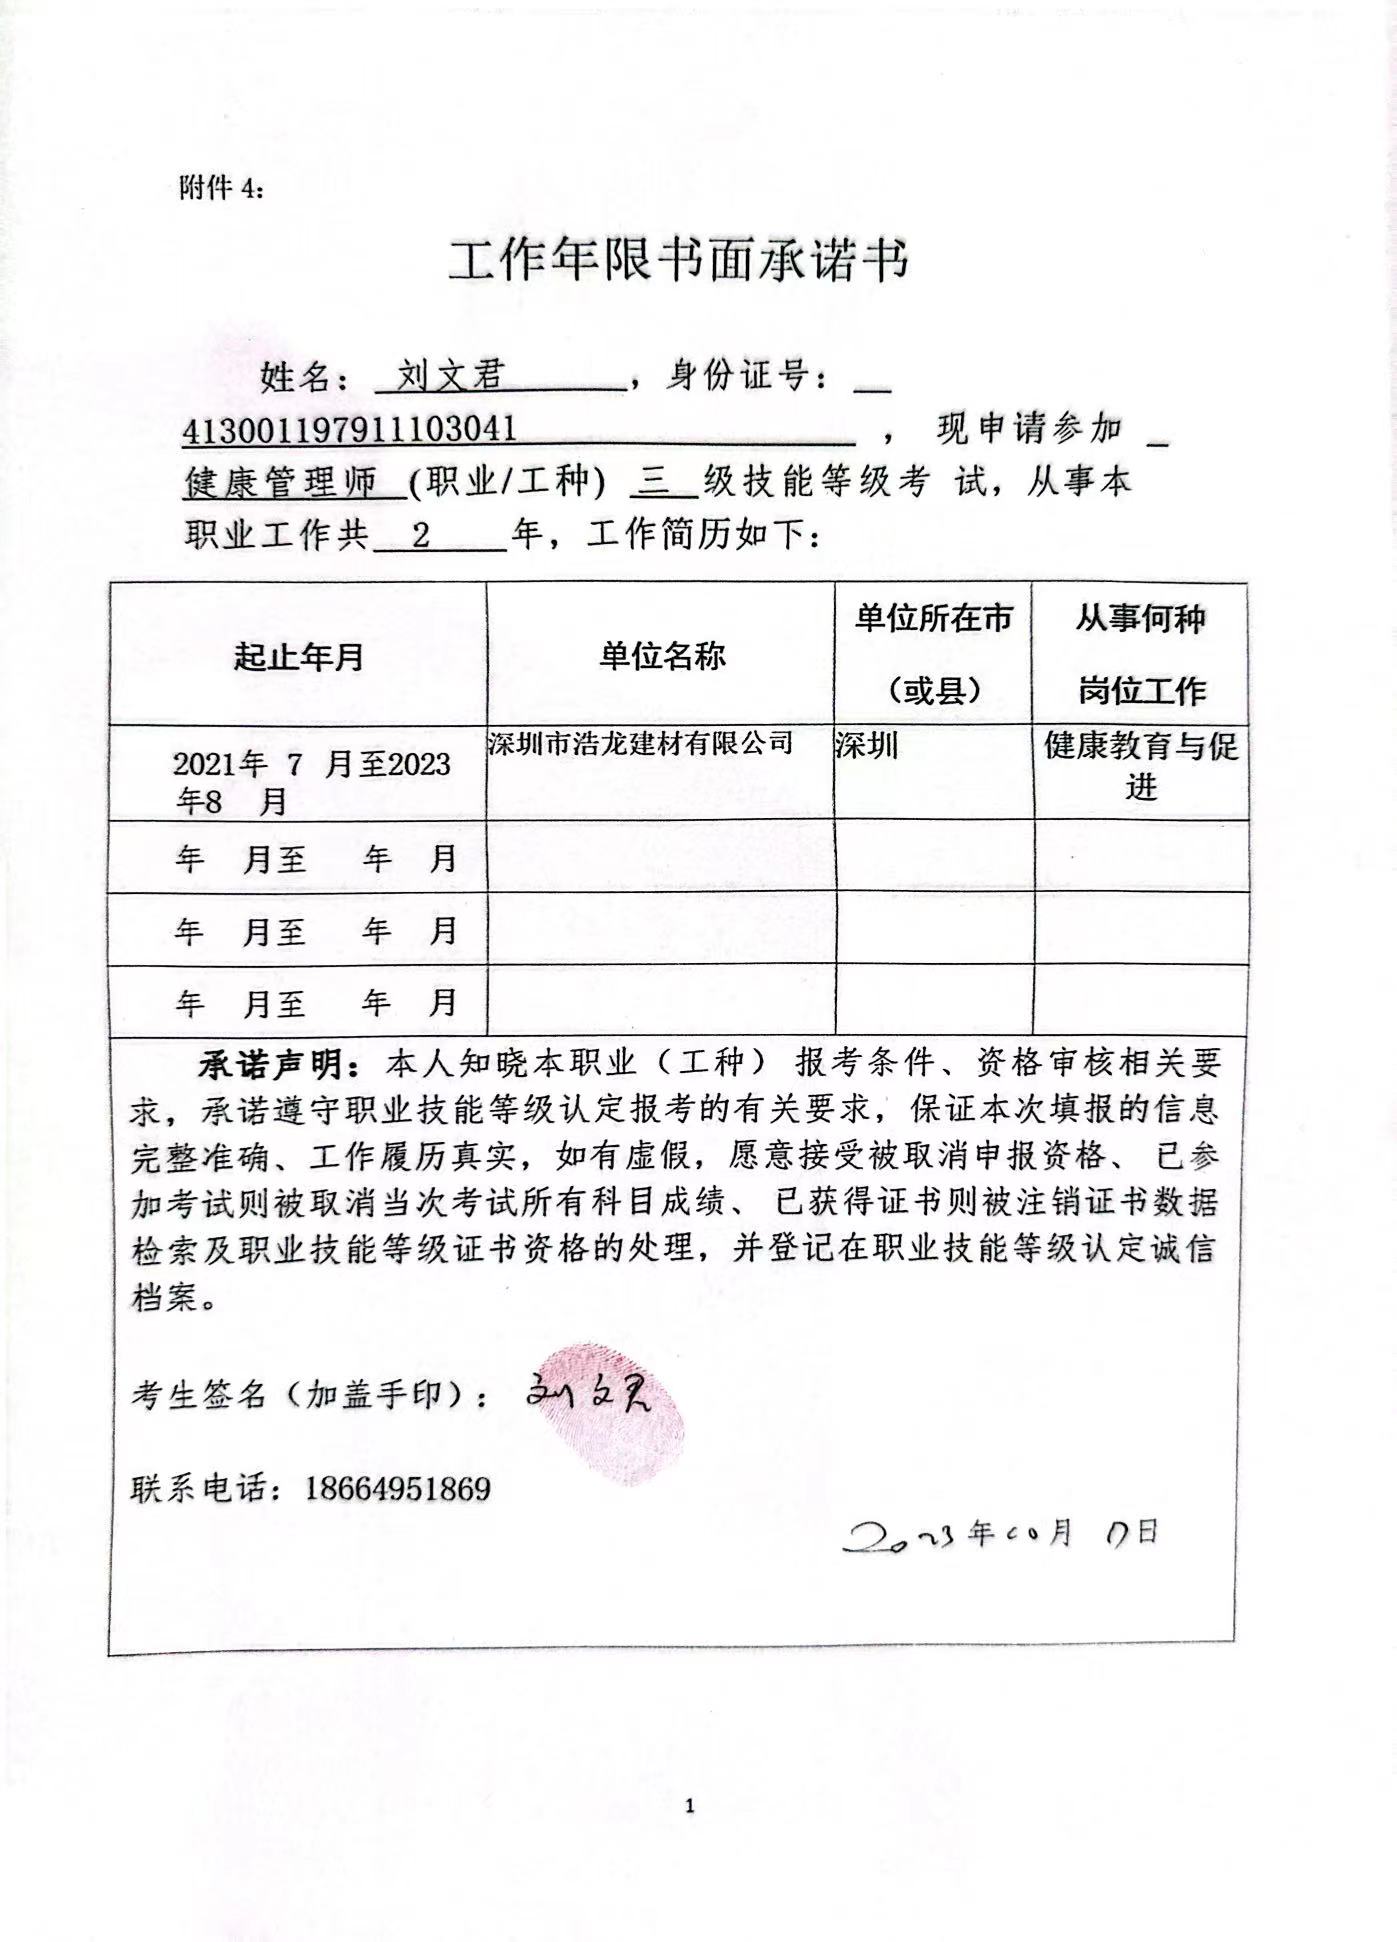 附件 4：
工作年限书面承诺书
姓名： 刘文君 ，身份证号：
413001197911103041 ， 现申请参加
健康管理师 (职业/工种) 三 级技能等级考 试，从事本
职业工作共 2 年，工作简历如下：
起止年月 单位名称 单位所在市（或县） 从事何种岗位工作
2021年 7 月至2023年8 月 深圳市浩龙建材有限公司 深圳 健康教育与促进
年 月至 年 月
年 月至 年 月
年 月至 年 月
承诺声明：本人知晓本职业（工种） 报考条件、资格审核相关要
求，承诺遵守职业技能等级认定报考的有关要求，保证本次填报的信息
完整准确、工作履历真实，如有虚假，愿意接受被取消申报资格、 已参
加考试则被取消当次考试所有科目成绩、 已获得证书则被注销证书数据
检索及职业技能等级证书资格的处理，并登记在职业技能等级认定诚信
档案。
考生签名（加盖手印）： 刘文君
联系电话：18664951869
2023年10月 17日
1